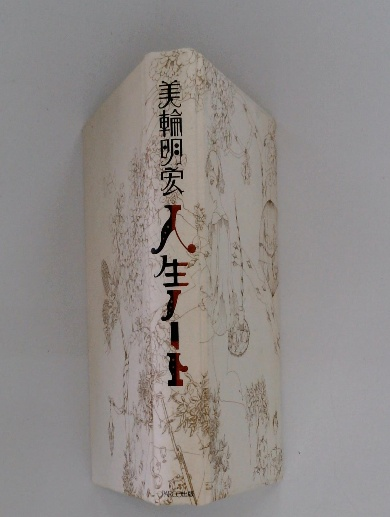 美輪明宏
人生ノート
PARCO出版